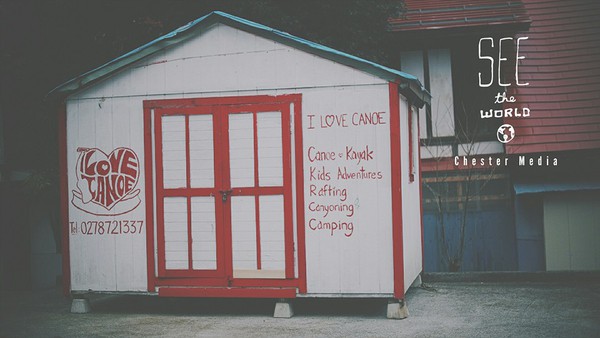 I LOVE CANOE
Tel: 0278721337
I LOVE CANOE
Canoe & Kayak
Kids Adventures
Rafting
Canyoning
Camping
SEE
the
WORLD
Chester Media